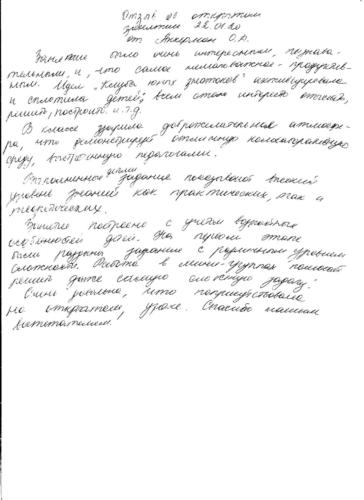 Отзыв об открытом
занятии 22.01.20
от Аккерман О.А.
Занятие было очень интересным, познава-
тельным, и, что самое немаловажное - продуктив-
ным. Идея "Клуба юных знатоков" активизировала
и сплотила детей, всем стало интересно отвечать,
решать, построить и.т.д.
В классе царила доброжелательная атмосфе-
ра, что демонстрирует отличную
среду, выстроенную педагогами.
Выполненные детьми задания показывают высокий
уровень знаний как практических, так и
теоретических.
Занятие построено с учётом возрастных
особенностей детей. На первом этапе
были розданы задания с различным уровнем
сложности. Работа в мини-группах помогает
решить даже самую сложную задачу.
Очень довольна, что поприсутствовала
на открытом уроке. Спасибо нашим
воспитателям.